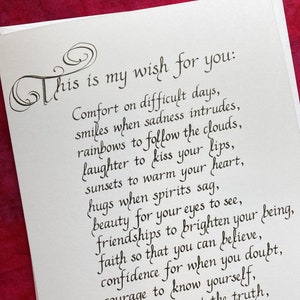 This is my wish for you:
Comfort on difficult days,
smiles when sadness intrudes,
rainbows to follow the clouds,
laughter to kiss your lips,
sunsets to warm your heart,
hugs when spirits sag,
beauty for your eyes to see,
friendships to brighten your being,
faith so that you can believe,
confidence for when you doubt,
courage to know yourself,
the truth,